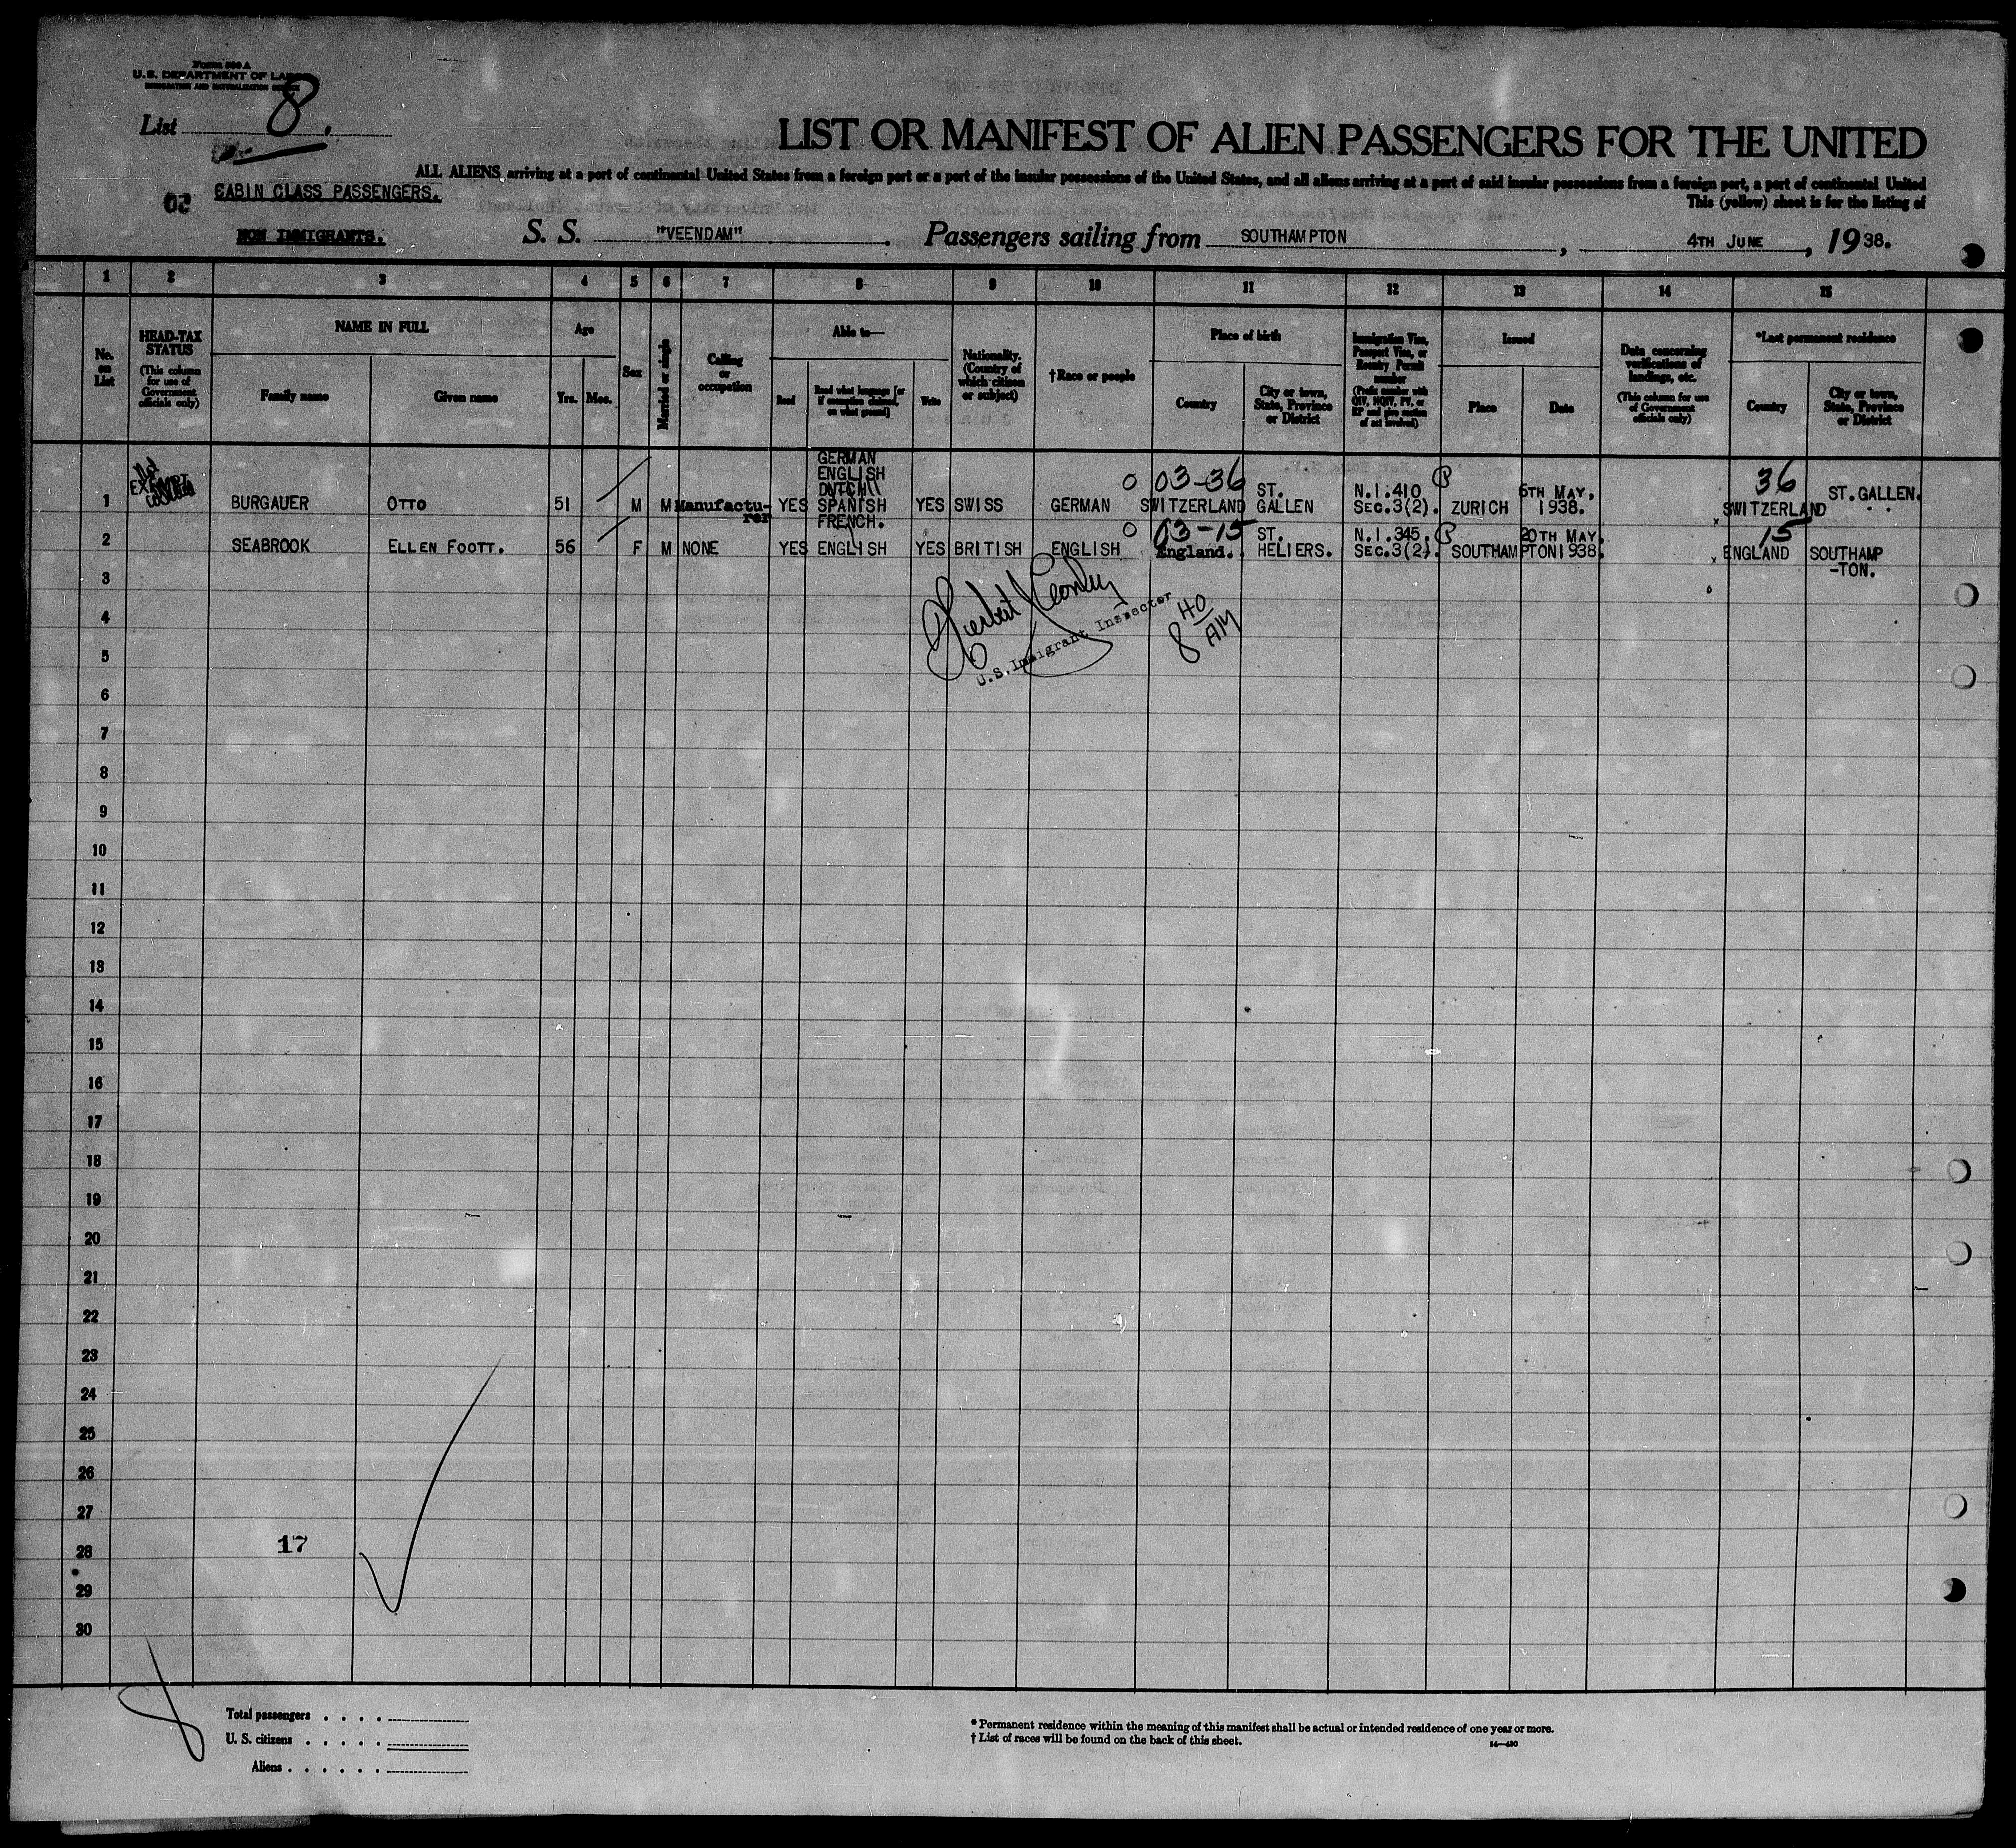 Form 500 A
U.S. DEPARTMENT OF LABOR
IMMIGRATION AND NATURALIZATION SERVICE
List 8.
LIST OR MANIFEST OF ALIEN PASSENGERS FOR THE UNITED
ALL ALIENS arriving at a port of continental United States from a foreign port or a port of the insular possessions of the United States, and all aliens arriving at a port of said insular possessions from a foreign port, a port of continental United
This (yellow) sheet is for the listing of
CABIN CLASS PASSENGERS.
NON IMMIGRANTS.
S. S. "VEENDAM". Passengers sailing from SOUTHAMPTON, 4TH JUNE, 1938.
1 2 3 4 5 6 7 8 9 10 11 12 13 14 15
No. on List
HEAD-TAX STATUS
(This column for use of Government officials only)
NAME IN FULL
Family name
Given name
Age
Yrs. Mos.
Sex
Married or single
Calling or occupation
Able to—
Read
Read what language [or if exemption claimed, on what ground]
Write
Nationality. (Country of which citizen or subject)
†Race or people
Place of birth
Country
City or town, State, Province or District
Immigration Visa, Passport Visa, or Reentry Permit number
(Prefix number with QIV, NQIV, PV, or RP and give section of act involved)
Issued
Place
Date
Data concerning verifications of landings, etc.
(This column for use of Government officials only)
*Last permanent residence
Country
City or town, State, Province or District
1 BURGAUER OTTO 51 M M Manufacturer YES GERMAN ENGLISH DUTCH SPANISH FRENCH. YES SWISS GERMAN 03-36 SWITZERLAND ST. GALLEN N.I.410 SEC.3(2). ZURICH 6TH MAY. 1938. 36 SWITZERLAND ST.GALLEN.
2 SEABROOK ELLEN FOOTT. 56 F M NONE YES ENGLISH YES BRITISH ENGLISH 03-15 England. ST. HELIERS. N.I.345. SEC.3(2). SOUTHAMPTON 20TH MAY. 1938. 15 ENGLAND SOUTHAMP-TON.
3
U.S. Immigrant Inspector
8 40 AM
4
5
6
7
8
9
10
11
12
13
14
15
16
17
18
19
20
21
22
23
24
25
26
27
28
17
29
30
Total passengers . . . .
U. S. citizens . . . . .
Aliens . . . . . .
* Permanent residence within the meaning of this manifest shall be actual or intended residence of one year or more.
† List of races will be found on the back of this sheet.